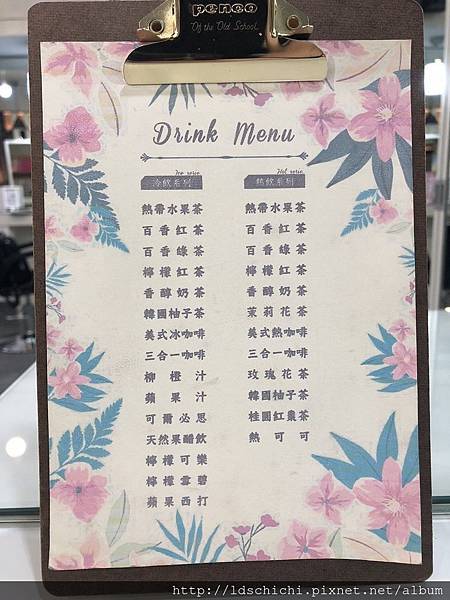 penco
"Of the Old School."
Drink Menu
Ice serie
冷飲系列
熱帶水果茶
百香紅茶
百香綠茶
檸檬紅茶
香醇奶茶
韓國柚子茶
美式冰咖啡
三合一咖啡
柳橙汁
蘋果汁
可爾必思
天然果醋飲
檸檬可樂
檸檬雪碧
蘋果西打
Hot serie
熱飲系列
熱帶水果茶
百香紅茶
百香綠茶
檸檬紅茶
香醇奶茶
茉莉花茶
美式熱咖啡
三合一咖啡
玫瑰花茶
韓國柚子茶
桂圓紅棗茶
熱可可
http://ldschichi.pixnet.net/album